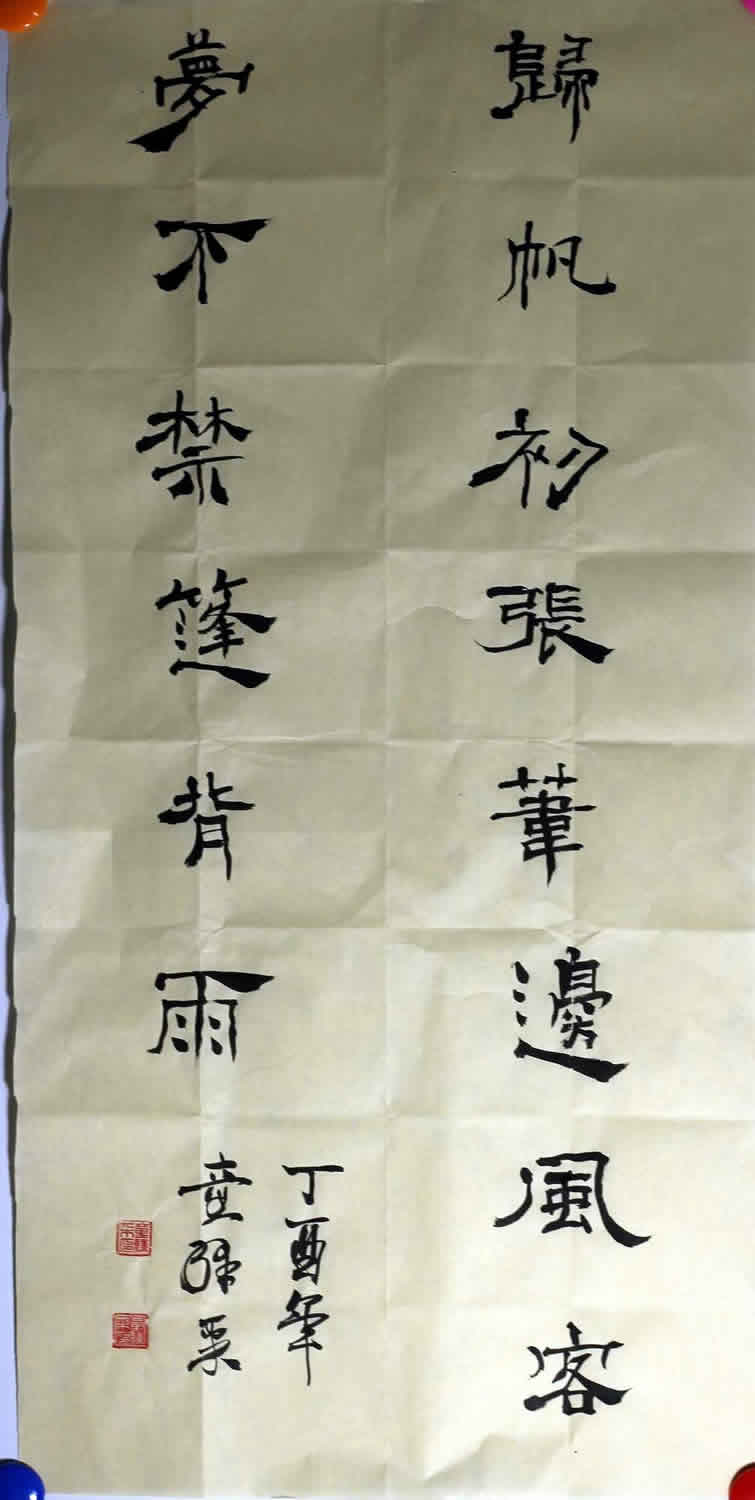 歸帆初張葦邊風客
夢不禁篷背雨
丁酉年
童